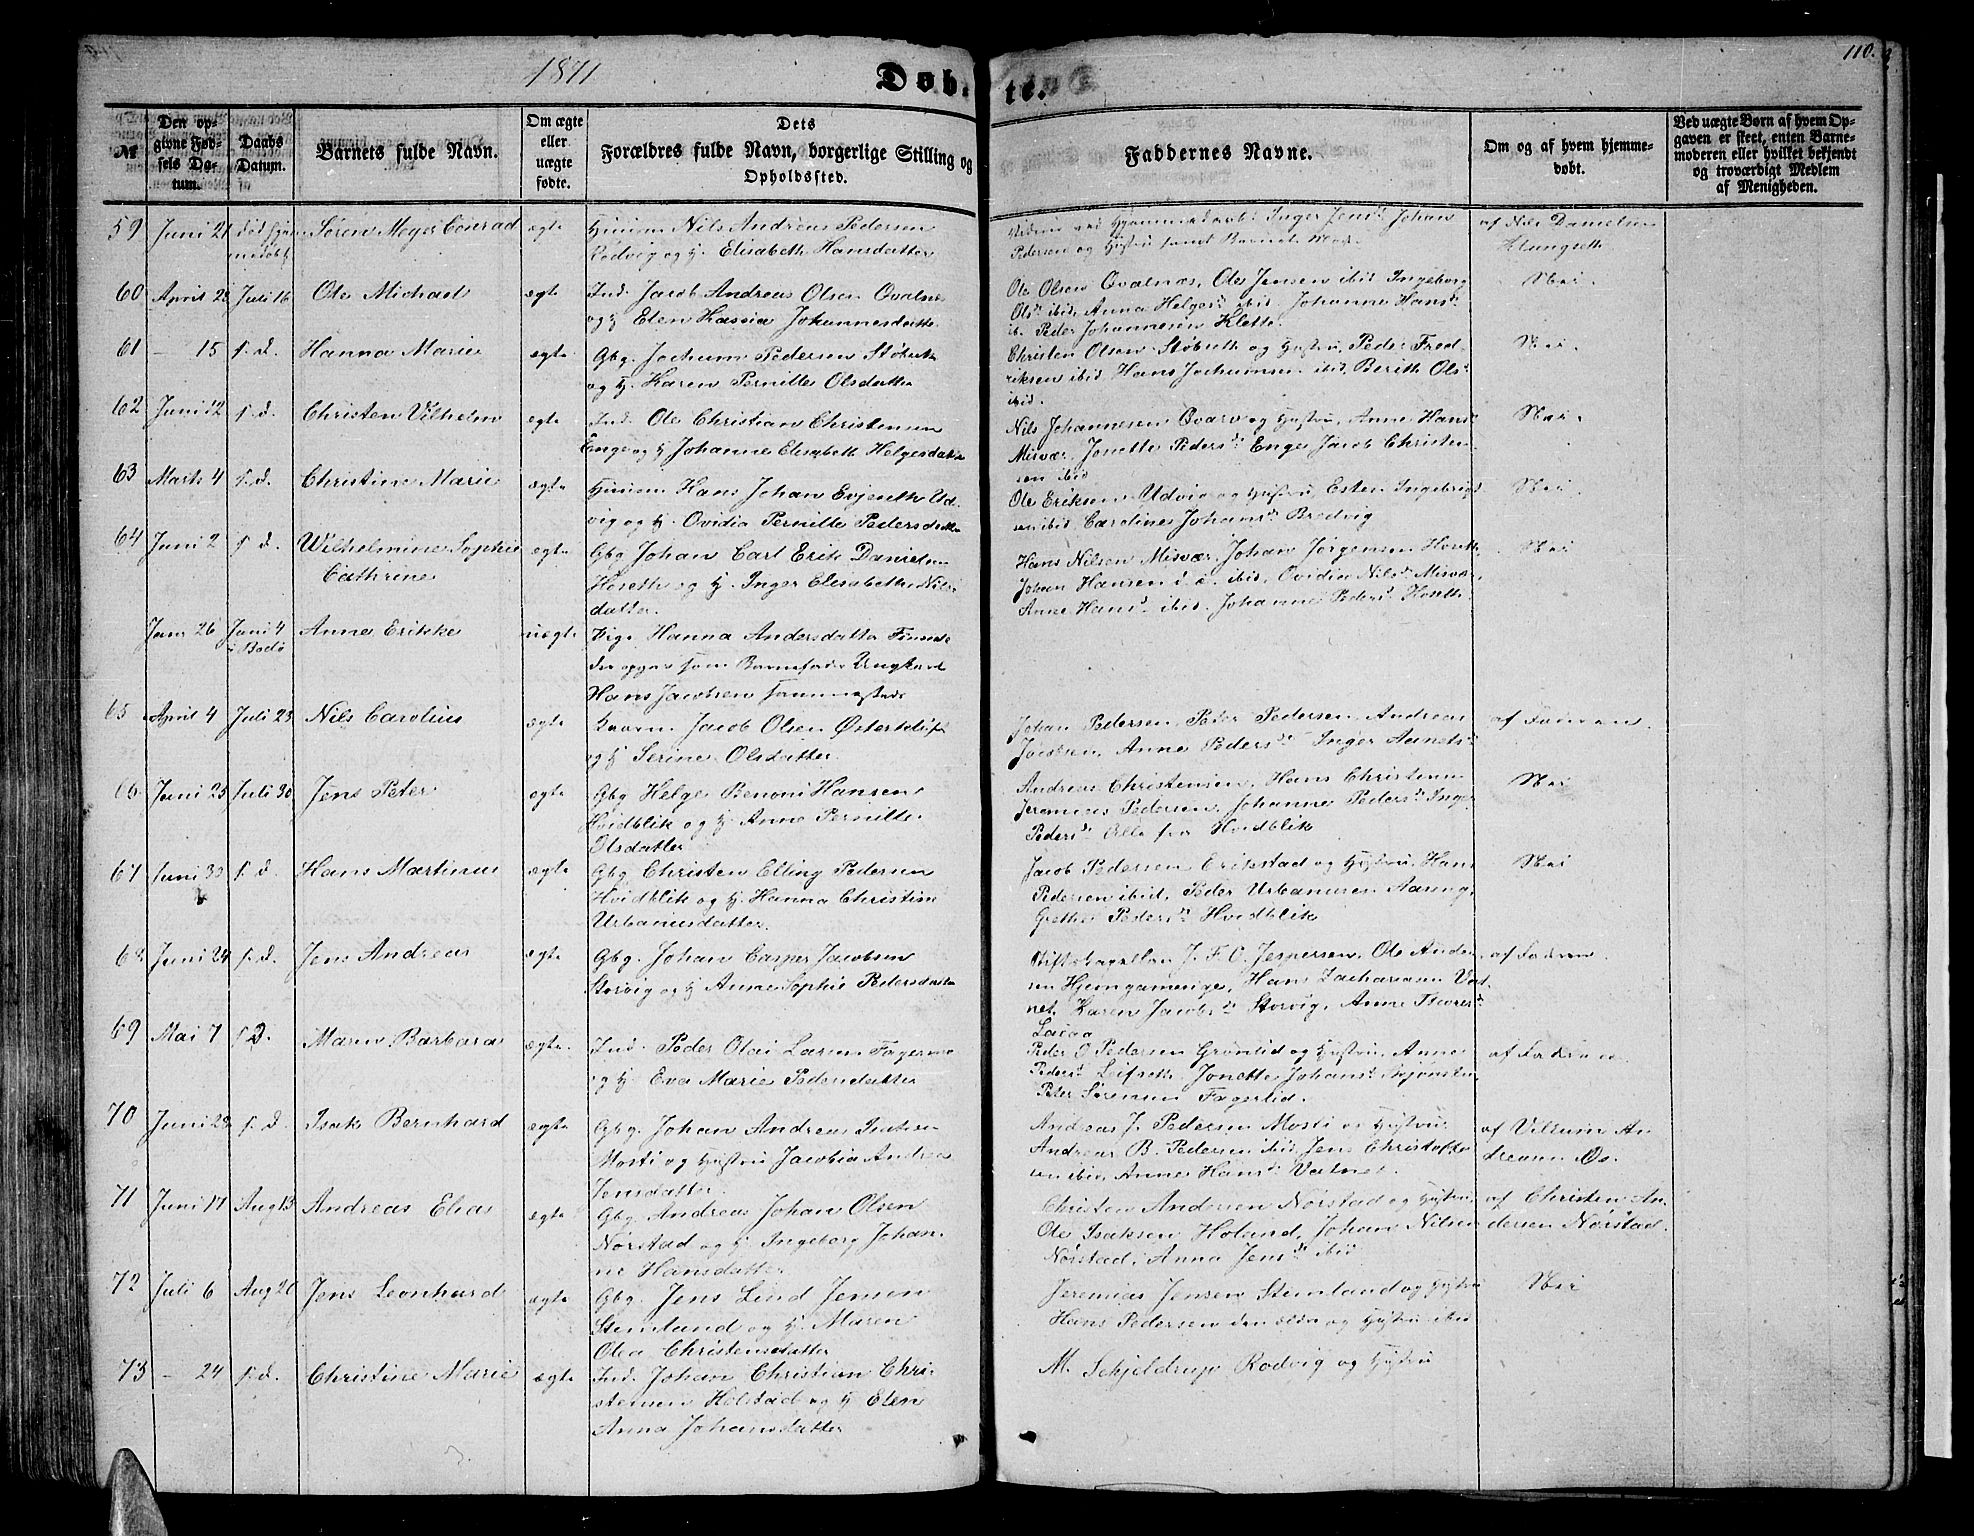 1871
Døbte.
110.
№
Den op-
givne Fød-
sels Da-
tum.
Daabs
Datum.
Barnets fulde Navn.
Om ægte
eller
uægte
fødte.
Dets
Forældres fulde Navn, borgerlige Stilling og
Opholdssted.
Faddernes Navne.
Om og af hvem hjemme-
døbt.
Ved uægte Børn af hvem Op-
gaven er skeet, enten Barne-
moderen eller hvilket bekjendt
og troværdigt Medlem
af Menigheden.
59 Juni 21 Søren Meyer Conrad ægte Nils Andreas Pedersen
og H. Elisabeth Hansdatter
Inger Jensd. Johan
Pedersen og Hustru samt Barnets Moder
af Nils Danielsen
60 April 28 Juli 16 Ole Michael ægte Ind. Jacob Andreas Olsen
og H. Elen Johannesdatter
Ole Olsen Ole Jensen ibid Ingeborg
Olsd. ibid, Anna Helgesd. ibid. Johanne Hansd.
ib. Peder Johannesen Klette.
Nei.
61 - 15 s. d. Hanna Marie ægte Gbg. Jochum Pedersen
og H. Karen Pernille Olsdatter
Christen Olsen Støbseth og Hustru, Peder Fred-
riksen ibid Hans Jochumsen ibid Berith Olsd.
ibid.
Nei.
62 Juni 12 s. d. Christen Vilhelm ægte Ind. Ole Christian Christensen
Enge og H. Johanne Elisabeth Helgesdatter
Nils Johannesen og Hustru, Anne Hansd.
Misvær, Jonette Pedersd. Enge, Jacob Christen-
sen ibid
Nei.
63 Marts 4 s. d. Christine Marie ægte Hans Johan Evjenth Ud-
vig og H. Ovidia Pernille Pedersdatter
Ole Eriksen Udvig og Hustru, Esten Ingebrigt-
sen ibid Caroline Johansd. Bredvig
Nei.
64 Juni 2 s. d. Wilhelmine Sophie
Cathrine
ægte Gbg Johan Carl Erik Danielsen
og H. Inger Elisabeth Nils-
datter.
Hans Nilsen Misvær, Johan Jørgensen
Johan Hansen ibid, Ovidia Nilsd. Misvær,
Anne Hansd. ibid. Johanne Pedersd.
Nei
26 Juni 4
i Bodø
Anne Erikke uægte Pige Hanna Andersdatter
der opgav som Barnefader Ungkarl
Hans Jacobsen sammesteds
65 April 4 Juli 23 Nils Carolius ægte Jacob Olsen
og H Serine Olsdatter.
Johan Pedersen, Peder Pedersen, Andreas
Jacobsen, Anne Pedersd. Inger
af Faderen.
66 Juni 25 Juli 30 Jens Peter ægte Gbg Helge Benoni Hansen
Hvidblik og H. Anne Pernille
Olsdatter
Andreas Christensen, Hans Christensen
Jeremias Pedersen, Johanne Pedersd. Inger
Pedersd. Alle fra Hvidblik
Nei
67 Juni 30 s. d. Hans Martinus ægte Gbg Christen Elling Pedersen
Hvidblik og H. Hanna Christine
Urbanusdatter.
Jacob Pedersen, Erikstad og Hustru, Hans
Pedersen ibid, Peder Urbanusen
Grethe Pedersd. Hvidblik
Nei
68 Juni 24 s. d. Jens Andreas ægte Gbg. Johan Casper Jacobsen
Storvig og H Anne Sophie Pedersdatter
Stiftskapellan J. F. O. Jespersen, Ole Ander-
sen Hjemgamenge, Hans Zachariasen Vat-
net, Karen Jacobsd. Storvig, Anne
af Faderen.
69 Mai 7 s. d. Maren Barbara ægte. Ind. Peder Olai Larsen
og H. Eva Marie Pedersdatter
Peder O Pedersen Grønlid og Hustru, Anne
Pedersd. Leifseth Jonette Johansd.
Peter Sørensen Fagerlid.
af Faderen.
70 Juni 28 s. d. Isak Bernhard ægte Gbg. Johan Andreas
Mosti og Hustru Jacobia Andrea
Jensdatter.
Andreas J. Pedersen Mosti og Hustru.
Andreas B. Pedersen ibid Jens Christoffer-
sen ibid, Anne Hansd. Vatnet.
af Villum An-
dreasen Øs.
71 Juni 17 Aug 13 Andreas Elias ægte Gbg. Andreas Johan Olsen
Nørstad og H. Ingeborg Johan-
ne Hansdatter
Christen Andersen Nørstad og Hustru,
Ole Isaksen Holand, Johan Nilsen
Nørstad, Anna Jensd. ibid
af Christen An-
dersen Nørstad.
72 Juli 6 Aug 20 Jens Leonhard ægte Gbg. Jens Lind Jensen
Stemland og H. Maren
Olea Christensdatter
Jeremias Jensen Stemland og Hustru
Hans Pedersen den ældre og Hustru ibid
Nei
73 - 24 s. d. Christine Marie ægte Ind. Johan Christian Chri-
stensen Holstad og H Elen
Anna Johansdatter
M. Schjeldrup Rodvig og Hustru